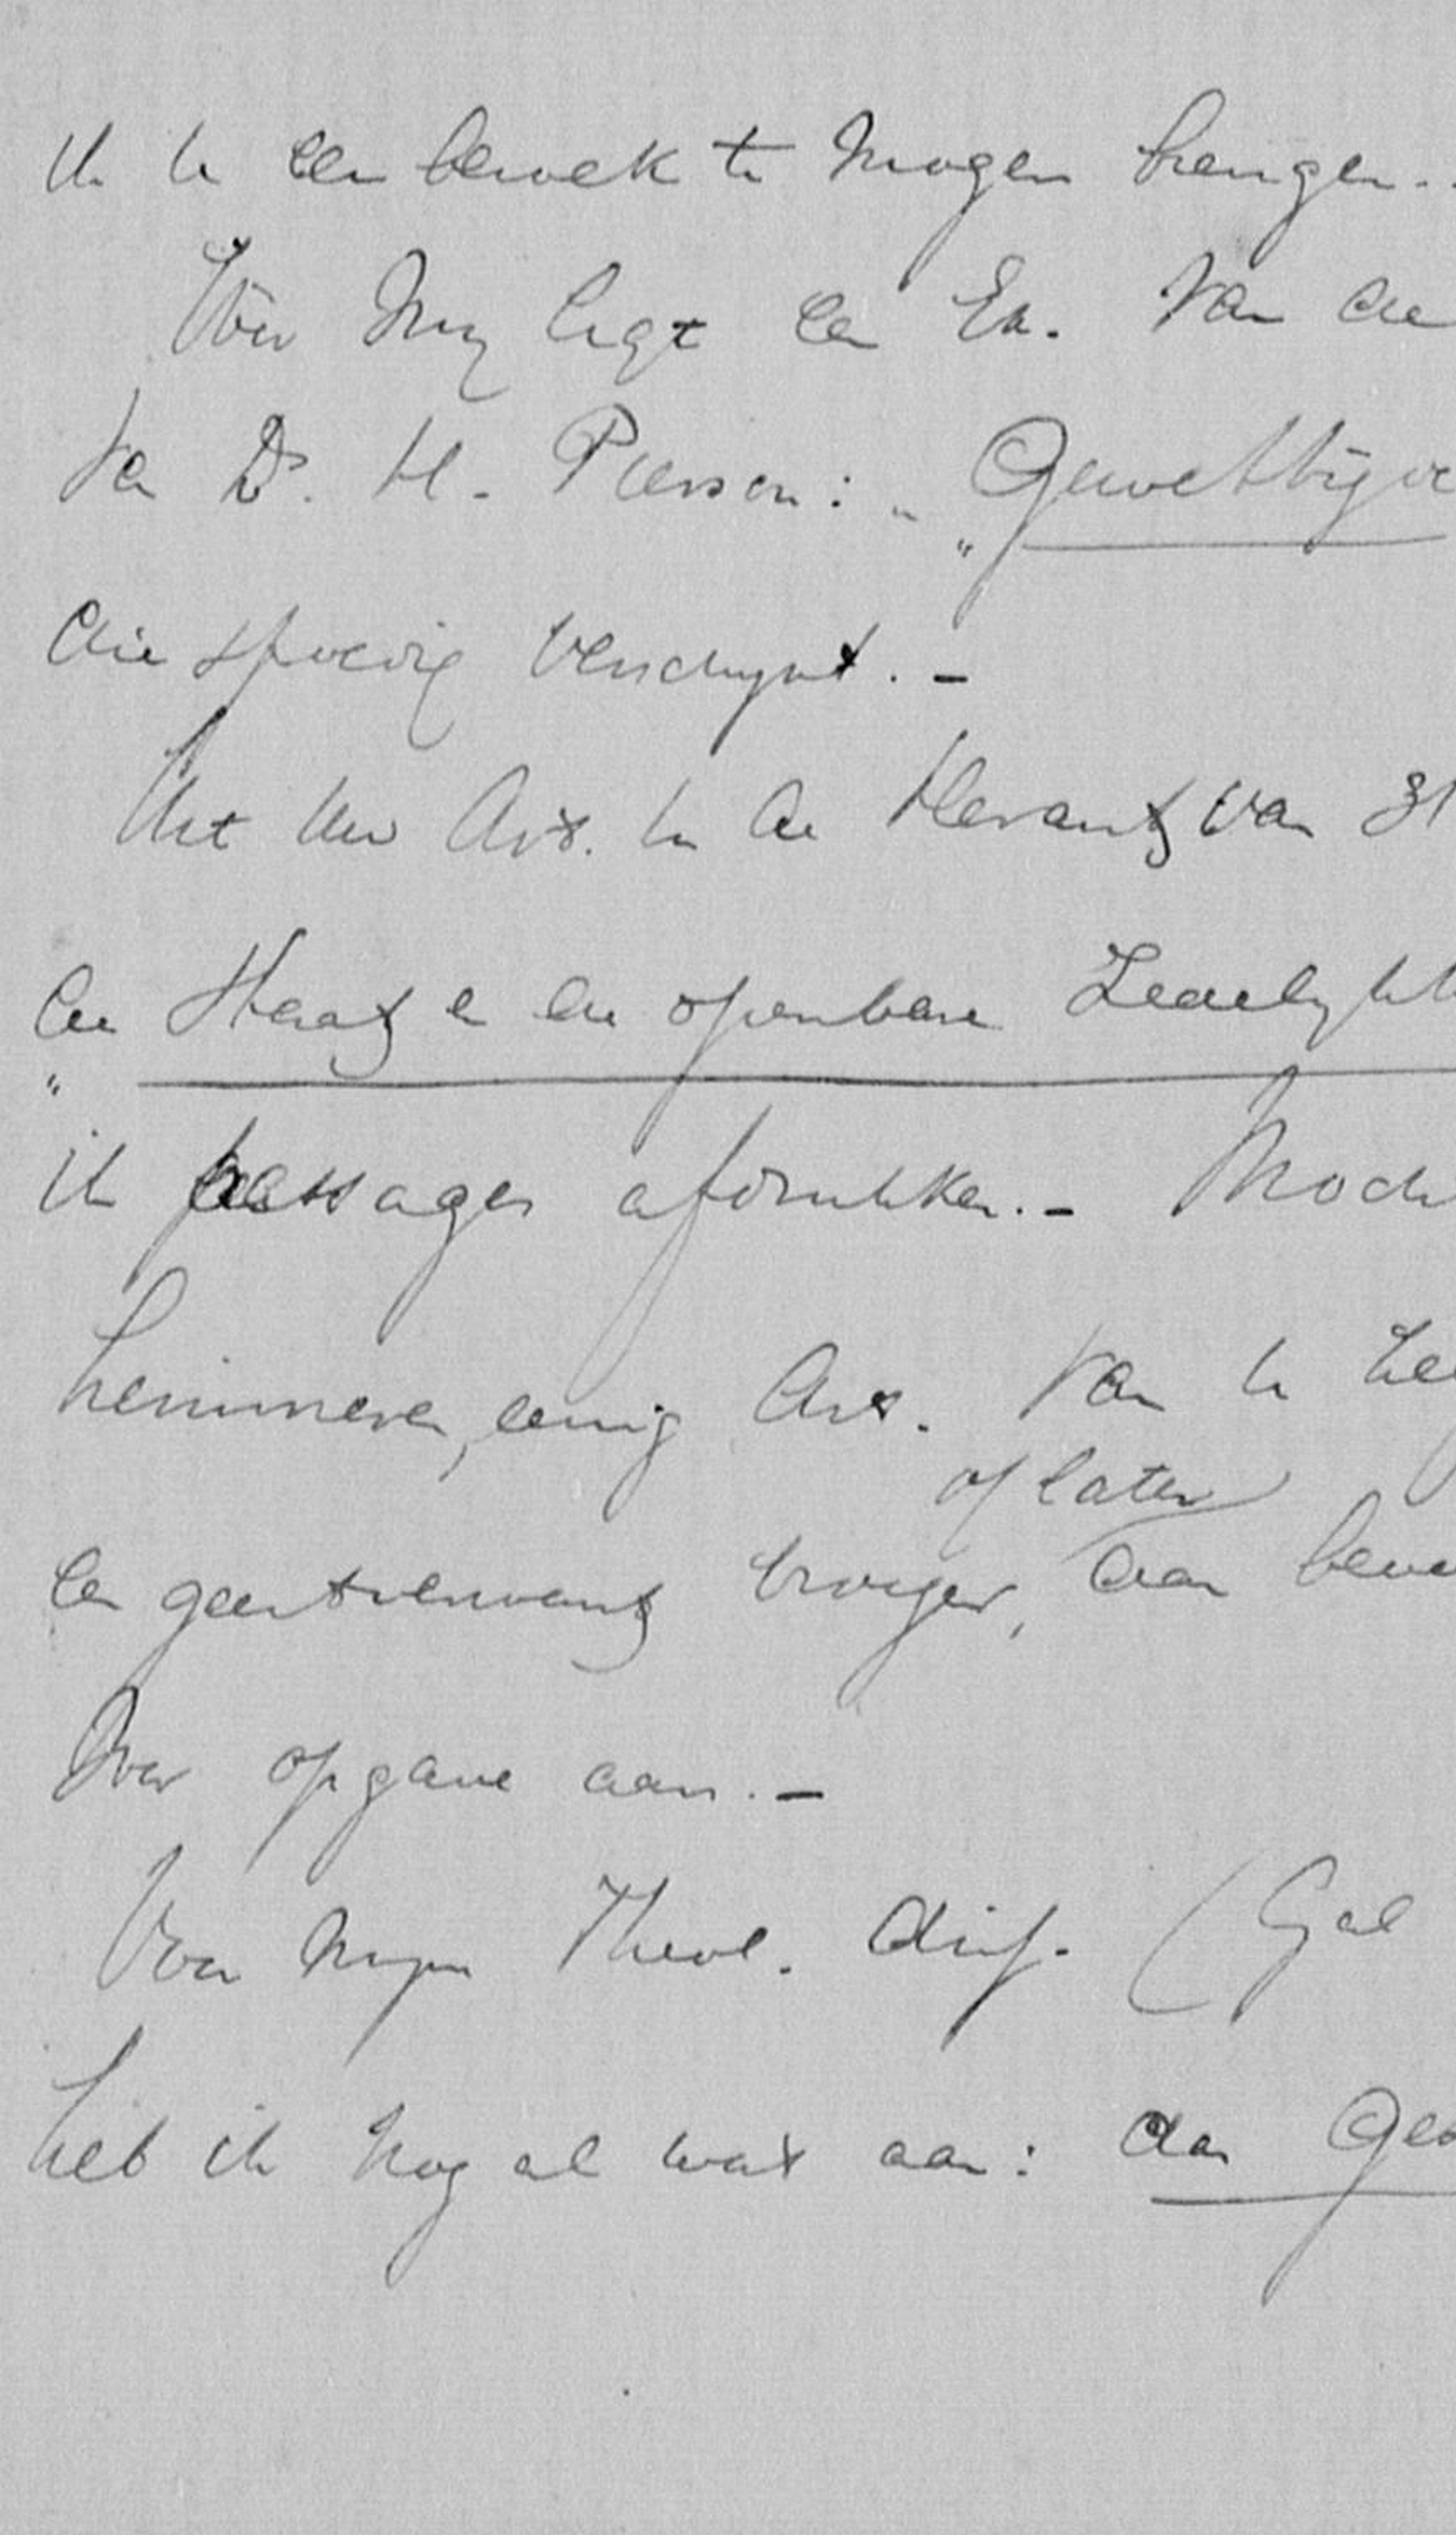 U U een bezoek te mogen brengen. -
Vóór my ligt een Ex. van de
van Ds. H. Pierson: „Gewettigde
die spoedig verschynt. -
Uit Uw Art. in de Heraut van 31
„de Staat en de openbare Zedelykh
ik passages afdrukken. - Mocht
herinneren, eenig Art. van U
of later
en geestverwant vroeger, aan
voor opgave aan. -
Voor myn Theol. diss. (Gal
heb ik nog al wat aan: dan Ges